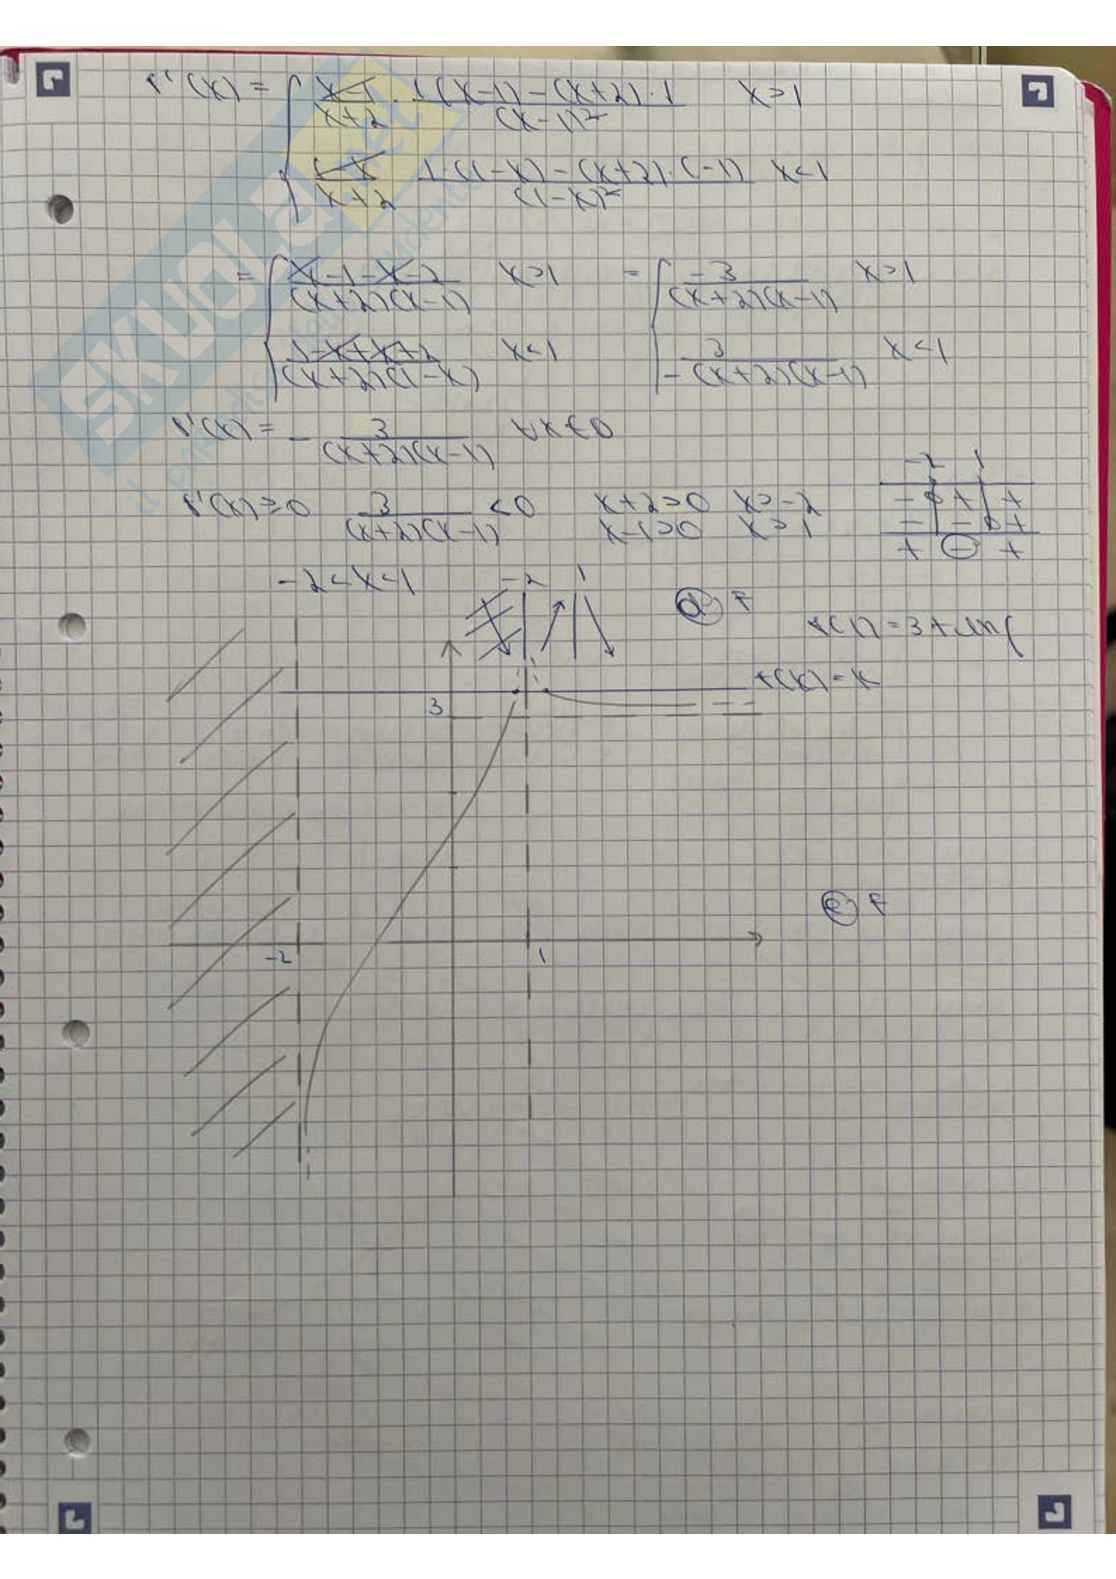 f'(x) = { x-1/x+2 · 1(x-1)-(x+2)·1/(x-1)² x>1
1-x/x+2 1·(1-x)-(x+2)·(-1)/(1-x)² x<1
= { x-1-x-2/(x+2)(x-1) x>1 = { -3/(x+2)(x-1) x>1
1-x+x+2/(x+2)(1-x) x<1 -3/(x+2)(x-1) x<1
f'(x) = - 3/(x+2)(x-1) ∀x∈D
-2 1
f'(x)≥0 3/(x+2)(x-1) <0 x+2>0 x>-2 - + +
x-1>0 x>1 - - +
+ - +
-2<x<1 -2 1 d F
f(x) = 3+ln(
f(x)=k
3
e F
-2 1
SKUOLA.net